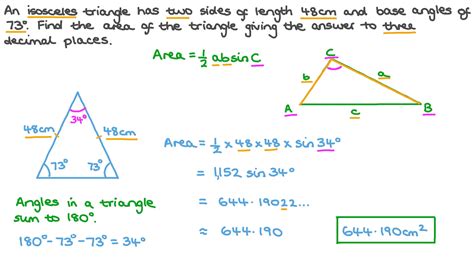 An isosceles triangle has two sides of length 48cm and base angles of
73°. Find the area of the triangle giving the answer to three
decimal places.
Area = 1/2 ab sin C
C
b
a
A
c
B
34°
48cm
48cm
73°
73°
Area = 1/2 × 48 × 48 × sin 34°
= 1,152 sin 34°
= 644.19022...
≈ 644.190
644.190cm²
Angles in a triangle
sum to 180°.
180° - 73° - 73° = 34°